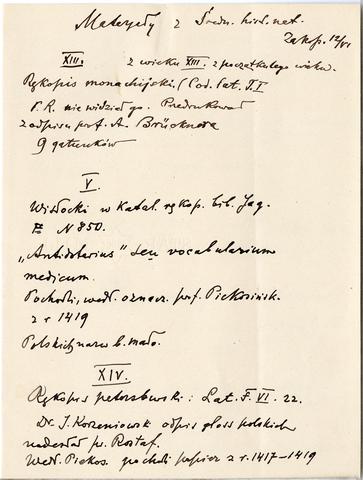 Materyały z Średn. hist. nat.
Zakop. 12/VI
XIII. z wieku XIII. z początkulego wieku.
Rękopis monachijski (Cod. lat. I.I
F. R. nie widział go. Przedrukował
z odpisu prof. A. Brücknera
9 gatunków
V.
Wisłocki w Katal. rękop. bib. Jag.
N 850.
„Antidotarius" seu vocabularium
medicum.
Pochodzi, wedł. oznacz. prof. Piekosińsk.
z r 1419
Polskich nazw b. mało.
XIV.
Rękopis petersburski: Lat. F. VI. 22.
Dr. J. Korzeniowsk odpis gloss polskich
nadesłał pr. Rostaf.
Wedł. Piekos. pochodzi papier z r. 1417–1419